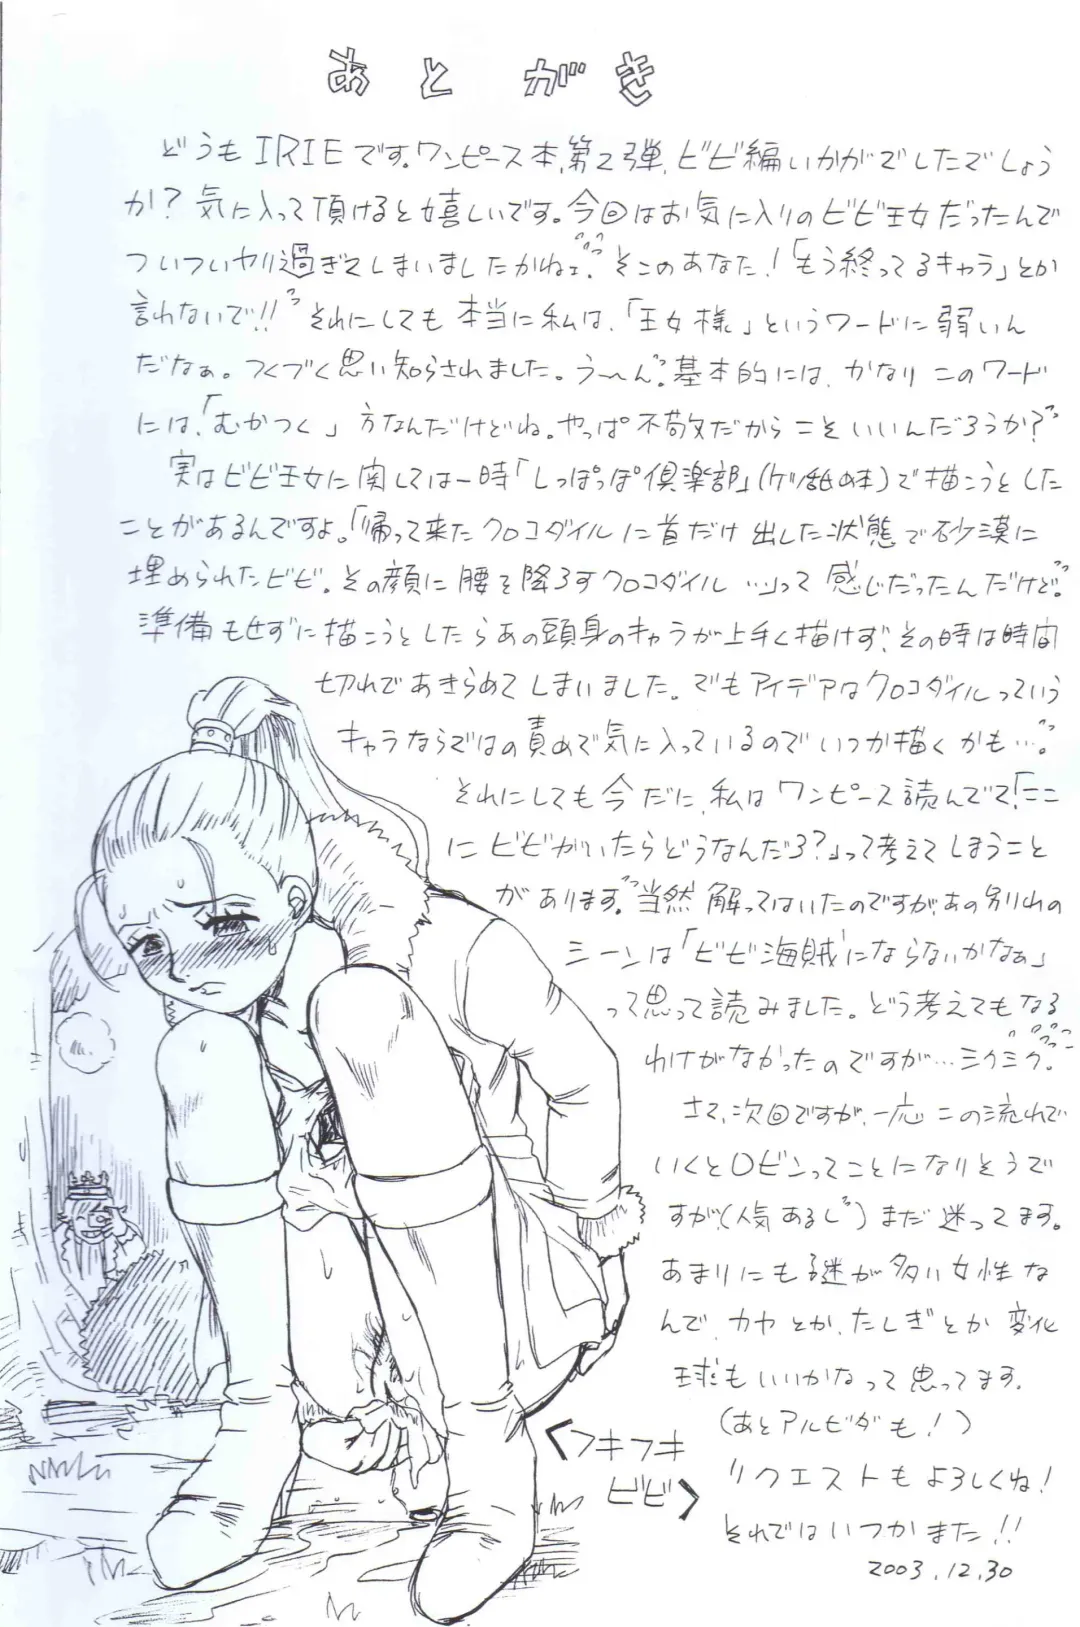 あとがき
どうもIRIEです。ワンピース本、第2弾、ビビ編いかがでしたでしょう
か？気に入って頂けると嬉しいです。今回はお気に入りのビビ王女だったんで
ついついヤリ過ぎてしまいましたかねェ。そこのあなた！「もう終ってるキャラ」とか
言わないで!!それにしても本当に私は、「王女様」というワードに弱いん
だなぁ。つくづく思い知らされました。う〜ん。基本的には、かなりこのワード
には、「むかつく」方なんだけどね。やっぱ不敬だからこそいいんだろうか？
実はビビ王女に関しては一時「しっぽっぽ倶楽部」(ケツ舐め本)で描こうとした
ことがあるんですよ。「帰って来たクロコダイルに首だけ出した状態で砂漠に
埋められたビビ。その顔に腰を降ろすクロコダイル…」って感じだったんだけど。
準備もせずに描こうとしたらあの頭身のキャラが上手く描けず、その時は時間
切れであきらめてしまいました。でもアイデアはクロコダイルっていう
キャラならではの責めで気に入っているのでいつか描くかも…。
それにしても今だに、私はワンピース読んでて、「ここ
にビビがいたらどうなんだろ？」って考えてしまうこと
があります。当然解ってはいたのですが、あの別れの
シーンは「ビビ海賊にならないかなぁ」
って思って読みました。どう考えてもなる
わけがなかったのですが…シクシク。
さて、次回ですが、一応この流れで
いくとロビンってことになりそうで
すが(人気あるし)まだ迷ってます。
あまりにも謎が多い女性な
んで、カヤとか、たしぎとか変化
球もいいかなって思ってます。
(あとアルビダも！)
リクエストもよろしくね！
それではいつかまた!!
2003.12.30
<フキフキ
ビビ>